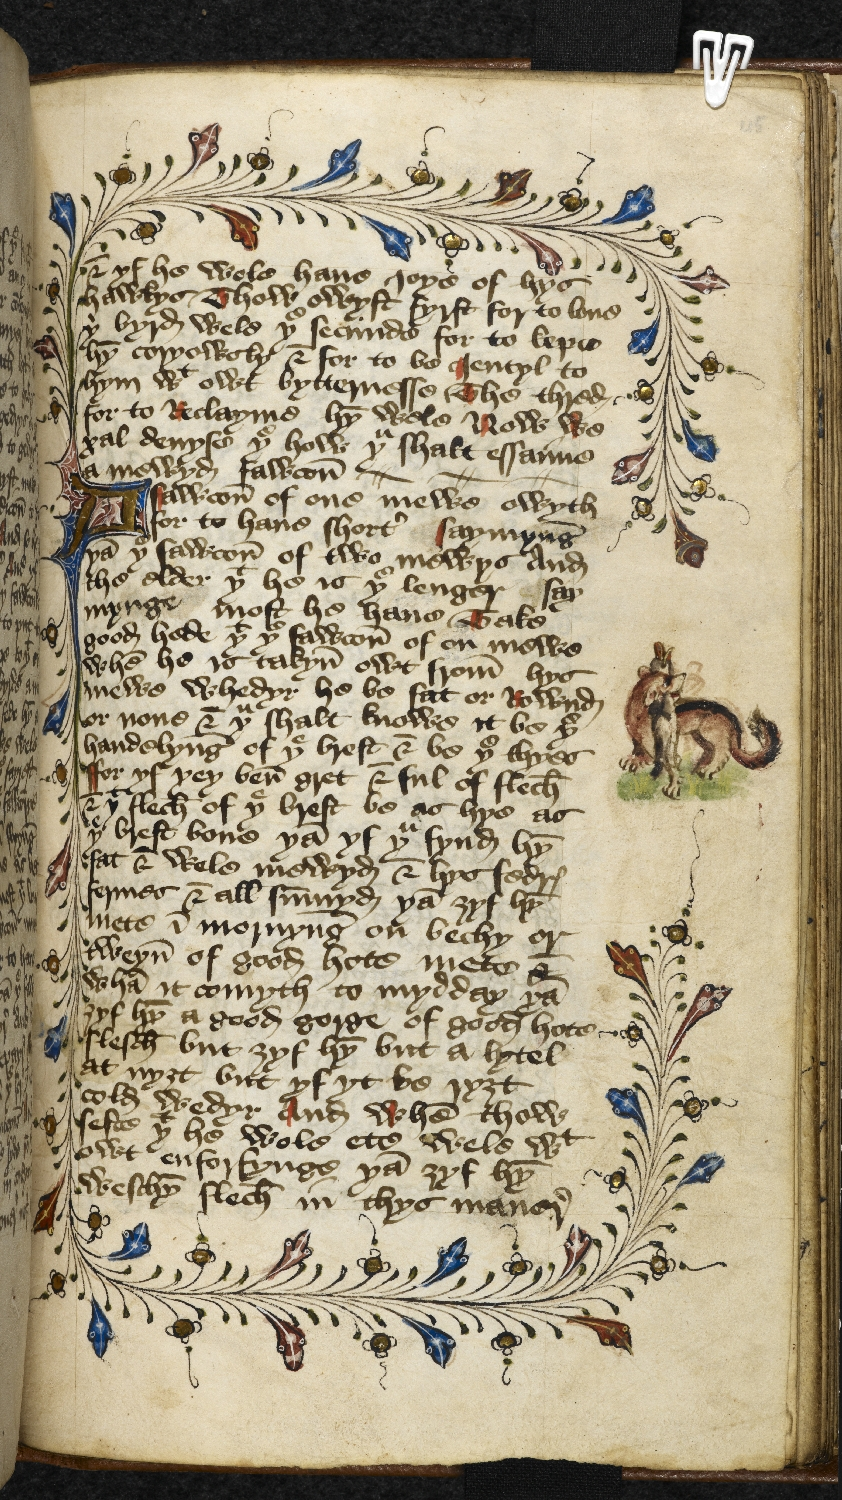 & yf he wele haue Joye of hys
hawkys Thow owyst fyrst for to loue
yͤ byrd wele yͤ secunde for to kepe
hȳ coryowsly & for to be Jentyl to
hym wᵗ owt bytternesse The thred
for to Reclayme hȳ wele Now we
xal deuyse yͤ how yᵘ shalt essaume
a mewyd fawcon
A fawcon of one mewe owyth
for to haue short saymyng
yā yͤ fawcon of two mewys And
the elder yͭ he is yͤ lenger say
mynge most he haue Take
good hede yͭ yͤ fawcon of on mewe
whē he is takyn owt from hys
mewe whedyr he be fat or Rownd
or none & yᵘ shalt knowe it be yͤ
handelyng of yͤ brest & be yͤ thyes
ffor yf yey ben gret & ful of flech
& yͤ flech of yͤ brest be as hye as
yͤ brest bone yā yf yᵘ fynd hȳ
fat & wele mewyd & hys fedyr
fermes & all sūmyd yā zyf hȳ
mete ī mornyng on bechy or
tweyn of good hote mete &
whā it comyth to mydday yā
zyf hȳ a good gorge of good hote
flesch but zyf hȳ but a lytel
at nyzt but yf yt be ryzt
cold wedyr And whē thow
seest yͭ he wole ete wele wᵗ
owt enforsynge yā zyf hȳ
weschȳ flech in thys maner